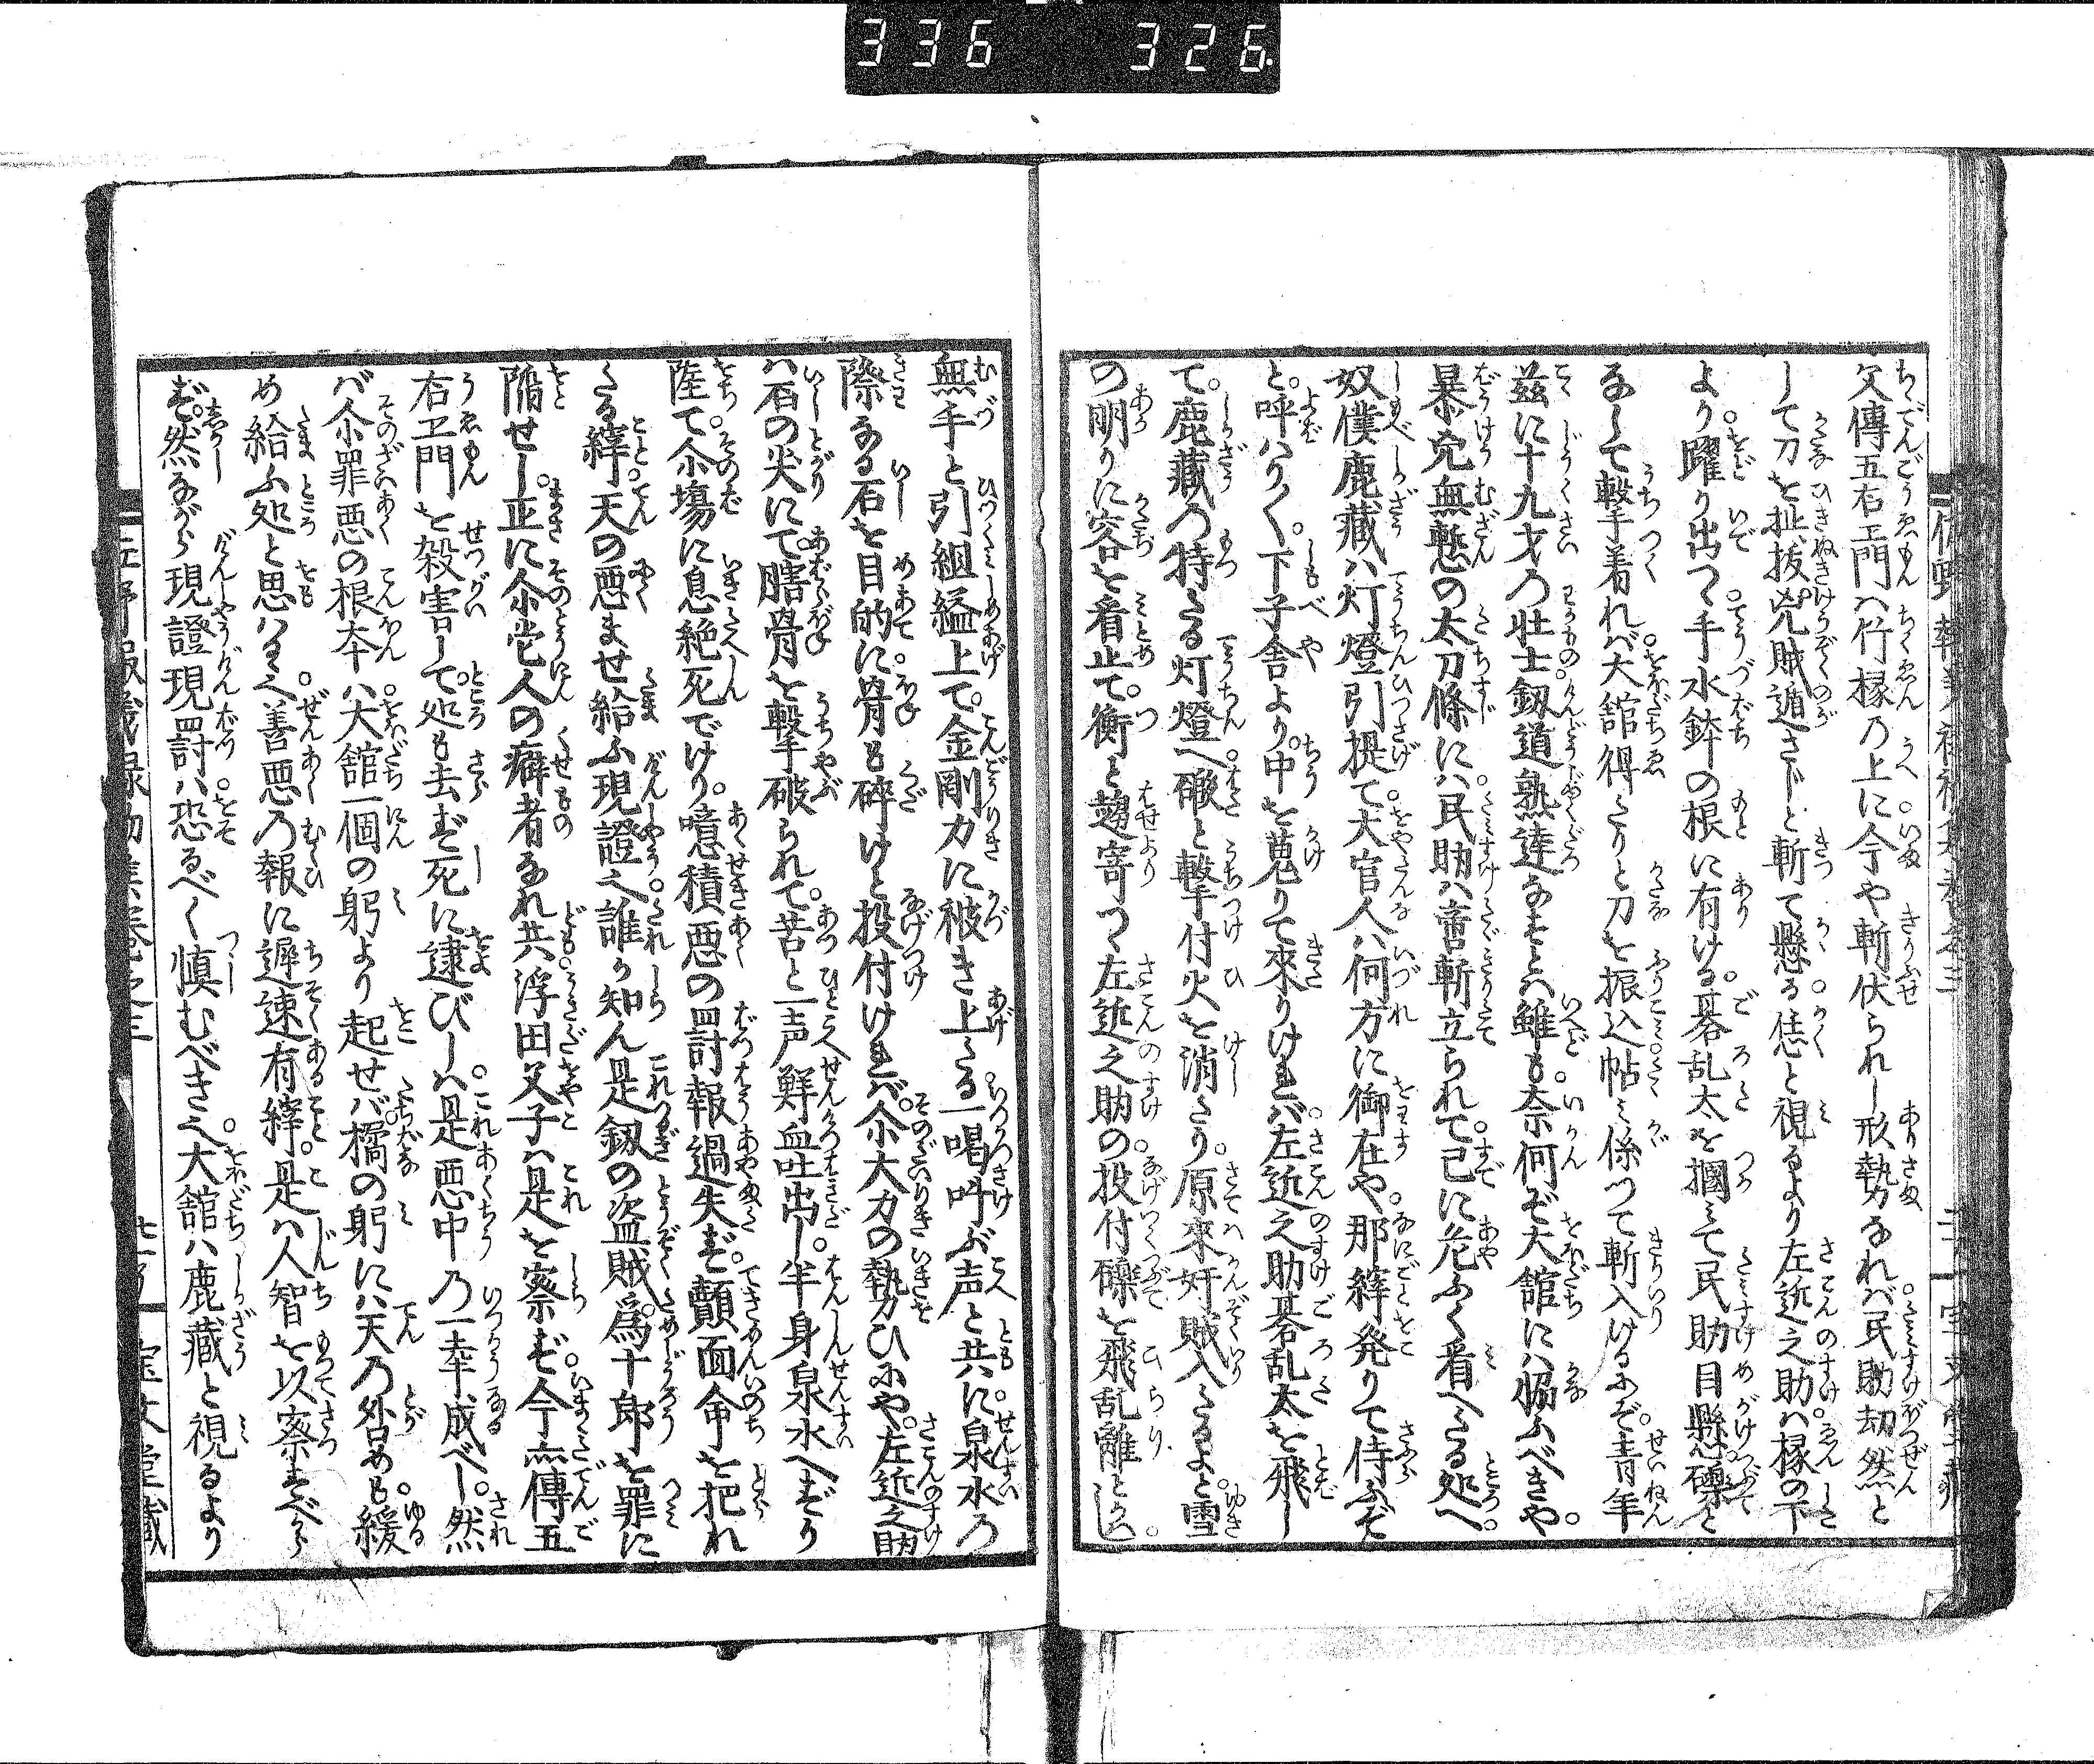 336 326
父傳五右エ門ハ竹椽の上に今や斬伏られし形勢なれバ民助刧然と
して刀を扯抜兇賊遁さじと斬て懸る恁と視るより左近之助ハ椽の下
より躍り出つゝ手水鉢の根に有ける碁乱太を摑ミて民助目懸礫と
なして撃着れバ大舘得たりと刀を振込帖ミ係つて斬入けるにぞ青年
茲に十九才の壮士釼道熟達なすとハ雖も奈何ぞ大舘にハ協ふべきや
暴兇無慙の太刀條にハ民助ハ啻斬立られて已に危ふく看へたる処へ
奴僕鹿藏ハ灯燈引提て大官人ハ何方に御在や那縡発りて侍ふぞ
と呼ハり〳〵下子舎より中を蒐りて來りけれバ左近之助碁乱太を飛し
て鹿藏の特たる灯燈へ礑と撃付火を消たり原來奸賊入たるよと雪
の明りに容を看止て衝と趨寄つゝ左近之助の投付礫を飛乱離と
無手と引組縊上て金剛力に被き上たる一喝呌ぶ声と共に泉水の
際なる石を目的に骨も碎けと投付けれバ尒大力の勢ひにや左近之助
ハ石の尖にて𦛗骨を撃破られて苦と一声鮮血吐出し半身泉水へずり
陸て尒塲に息絶死でけり噫積悪の罸報過失ず顫面命を把れ
たる縡天の悪ませ給ふ現證也誰か知ん是釼の盗賊為十郎を罪に
陥せし正に尒党人の癖者なれ共浮田父子ハ是を察ず今亦傳五
右エ門を殺害して処も去ず死に逮びしハ是悪中の一幸成べし然
バ尒罪悪の根本ハ大舘一個の躬より起せバ橘の躬にハ天の咎めも緩
め給ふ処と思ハる也善悪の報に遲速有縡是ハ人智を以察すべから
ず然ながら現證現罸ハ恐るべく慎むべき也大舘ハ鹿藏と視るより